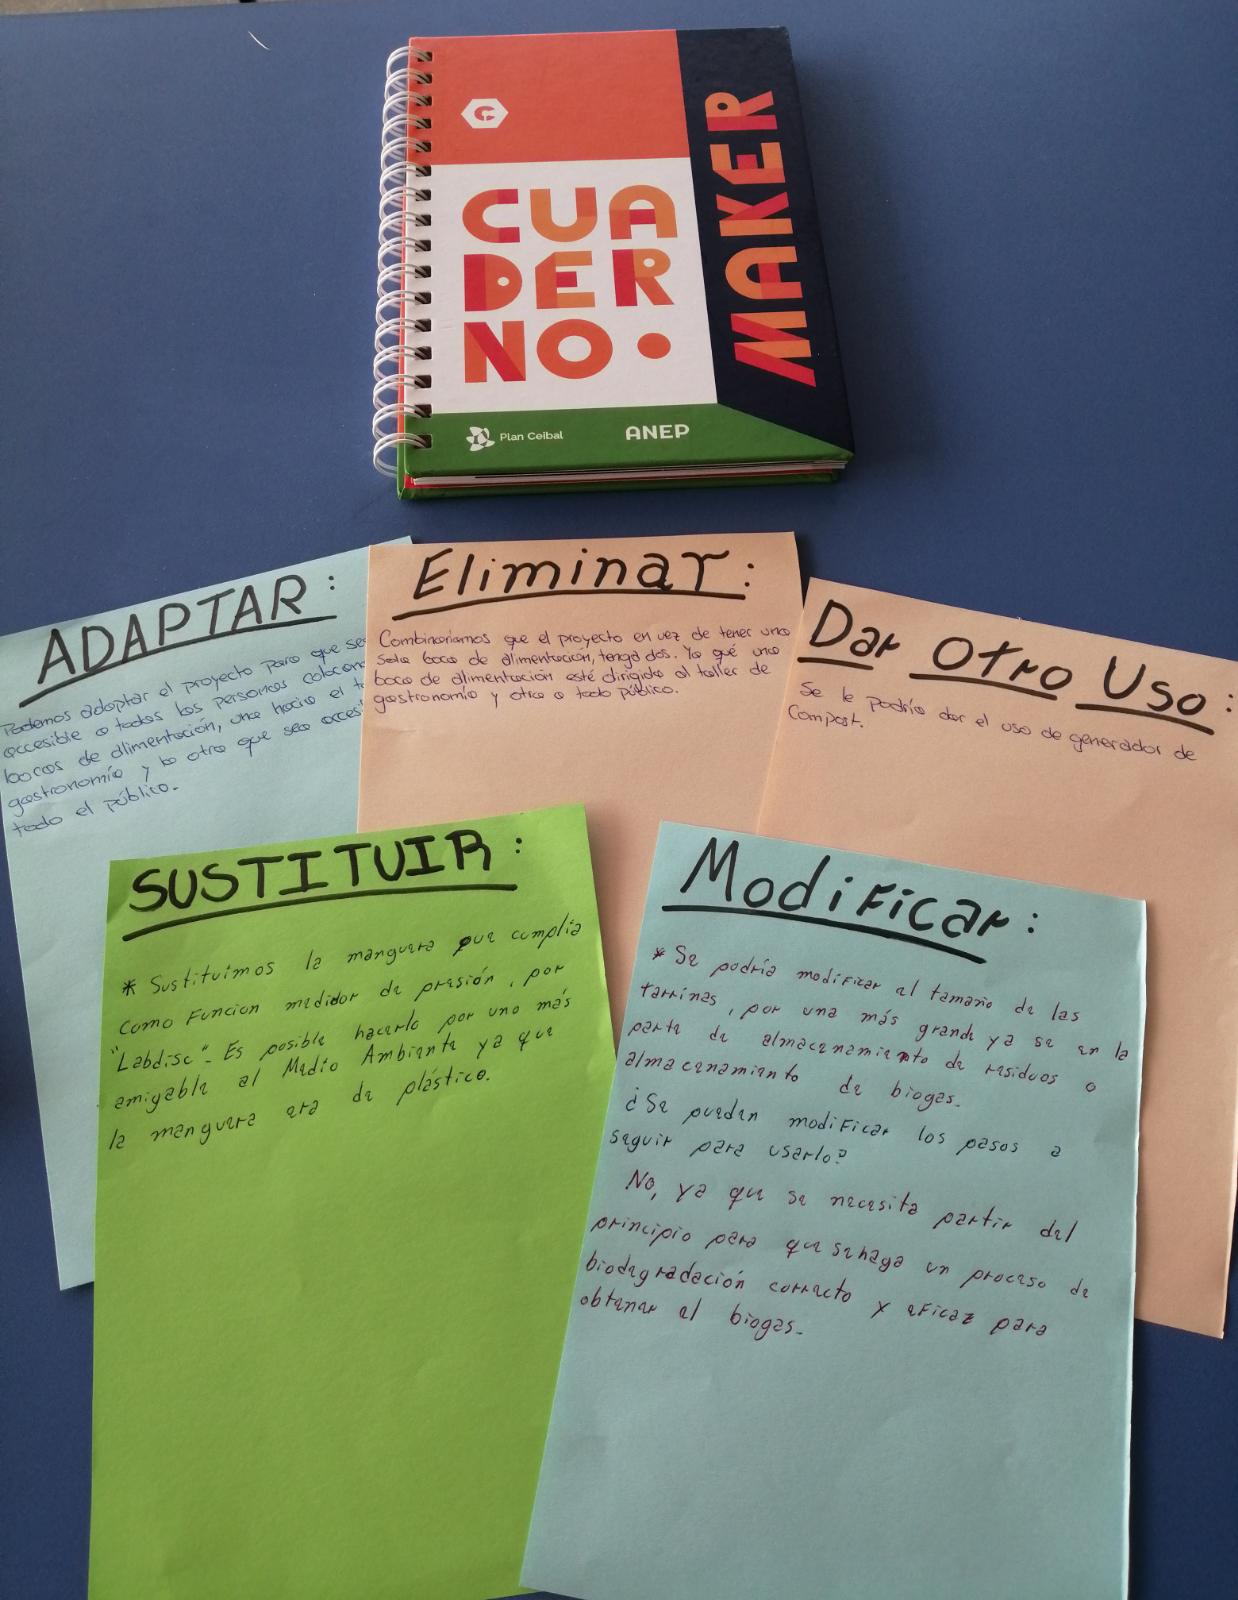 CUA
DER
NO.
MAKER
Plan Ceibal
ANEP
ADAPTAR:
Podemos adaptar el proyecto para que sea
accesible a todas las personas
bocas de alimentación, una hacia el
gastronomía y la otra que sea
todo el público.
Eliminar:
Combinaríamos que el proyecto en vez de tener una
sola boca de alimentación, tenga dos. Ya qué una
boca de alimentación esté dirigida al taller de
gastronomía y otra a todo público.
Dar Otro Uso:
Se le podría dar el uso de generador de
Compost.
SUSTITUIR:
* Sustituimos la manguera que cumplía
como Funcion medidor de presión, por
"Labdisc"- Es posible hacerlo por uno más
amigable al Medio Ambiente ya que
la manguera era de plástico.
Modificar:
* Se podría modificar el tamaño de las
tarrinas, por una más grande ya se en la
parte de almacenamiento de residuos o
almacenamiento de biogas.
¿Se pueden modificar los pasos a
seguir para usarlo?
No, ya que se necesita partir del
principio para que se haga un proceso de
biodegradación correcto y eficaz para
obtener el biogas.